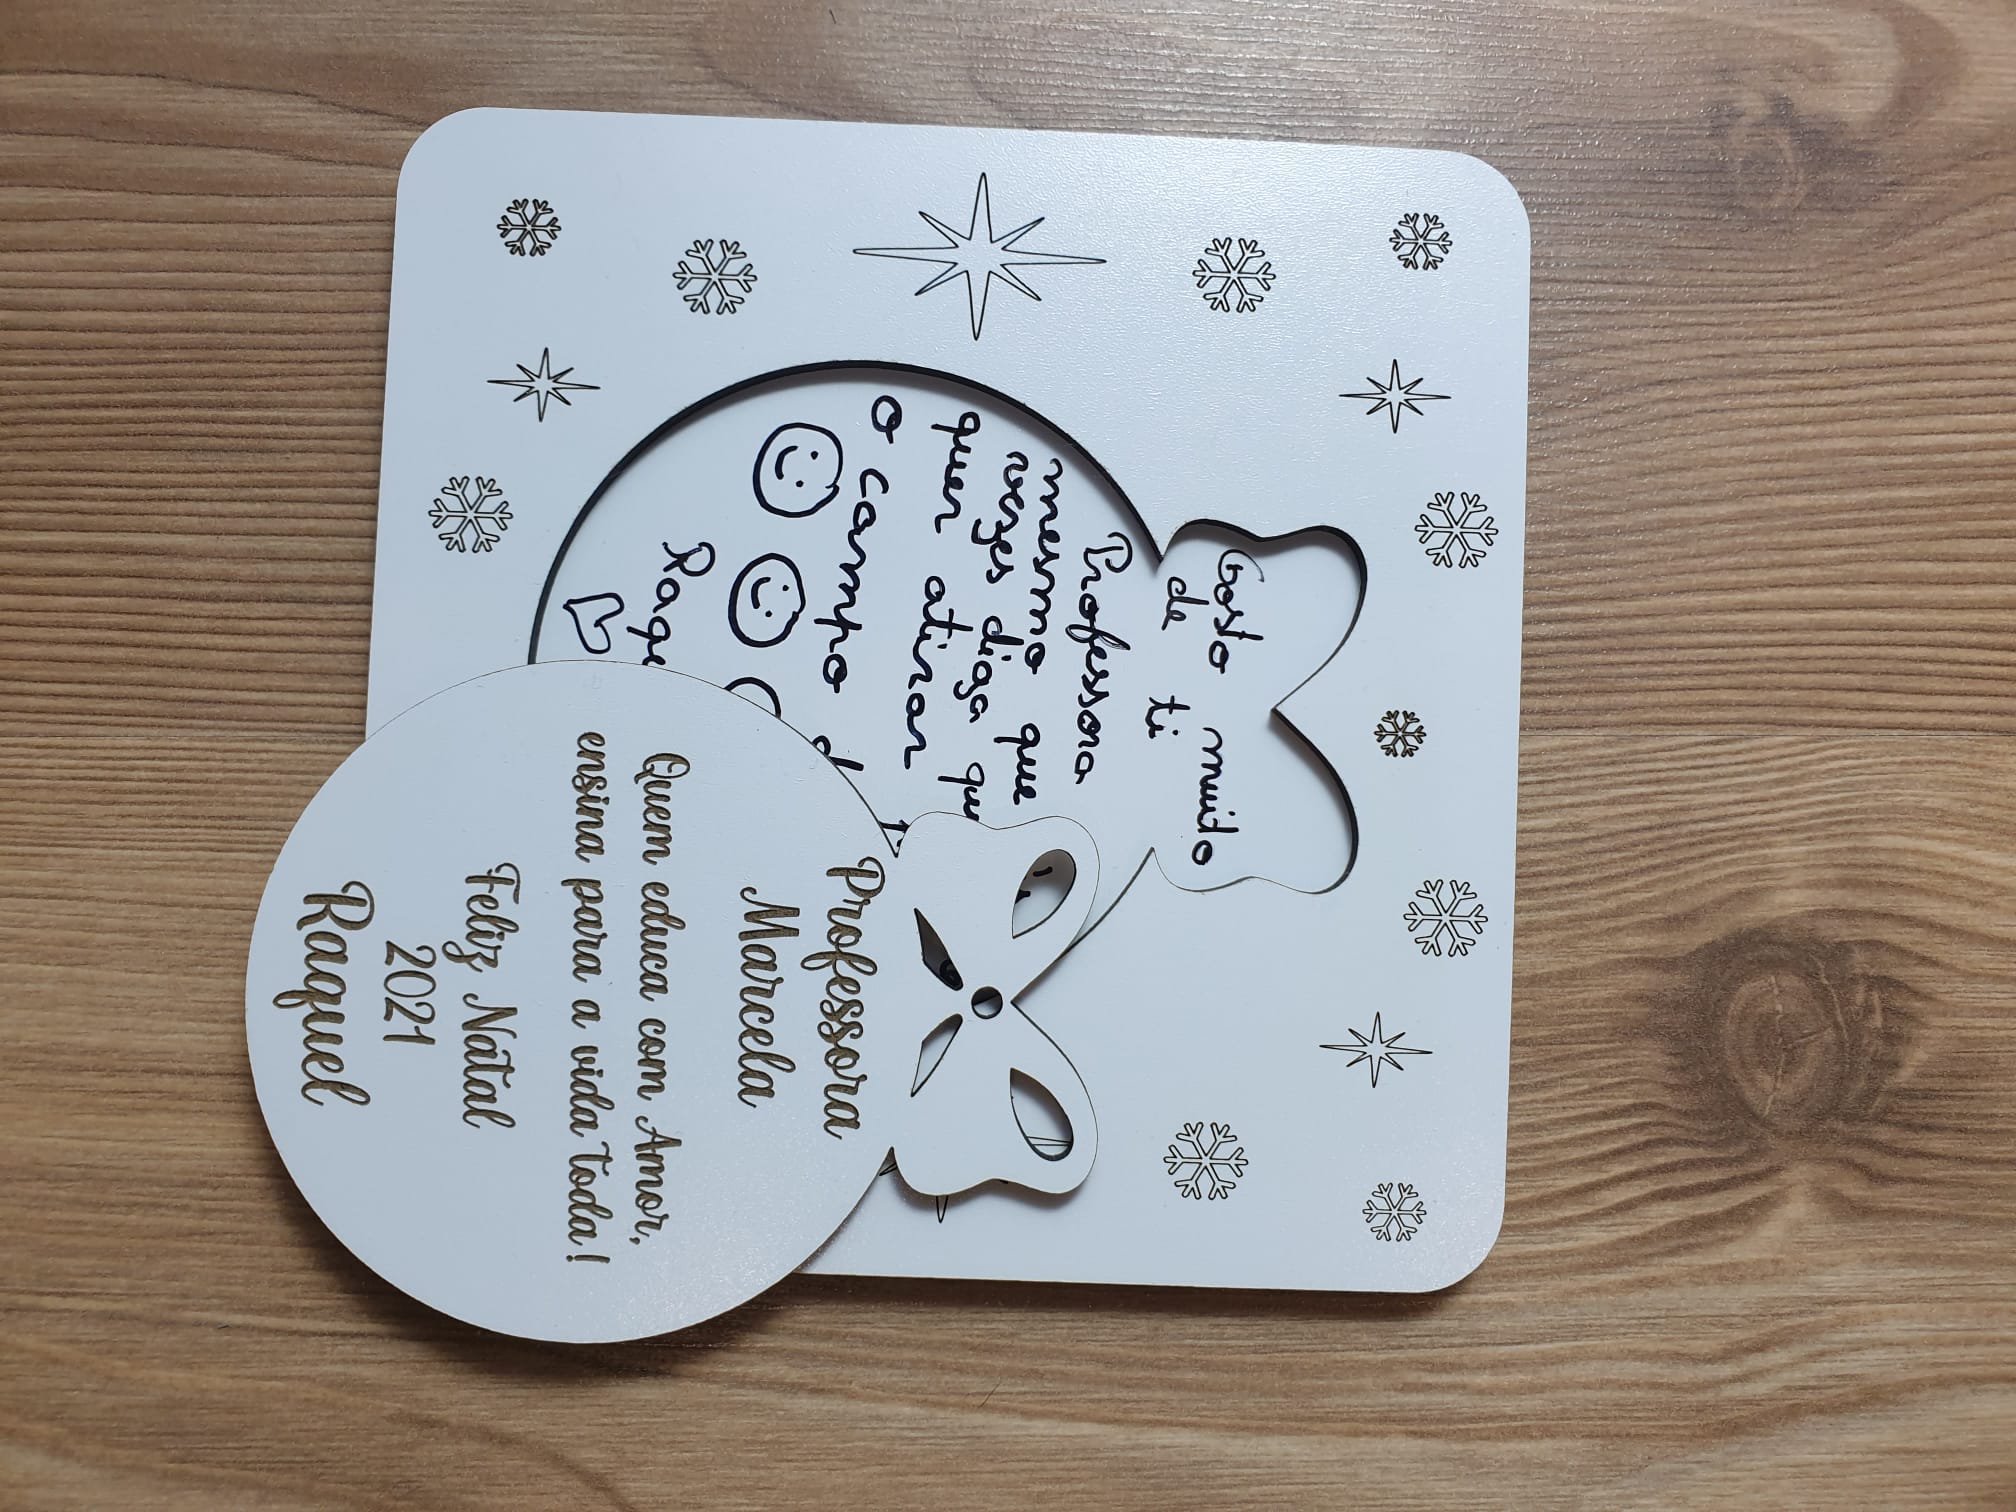 Gosto muito
de ti
Professora
mesmo que
vezes diga que
quer atirar
o campo
Professora
Marcela
Quem educa com Amor,
ensina para a vida toda!
Feliz Natal
2021
Raquel